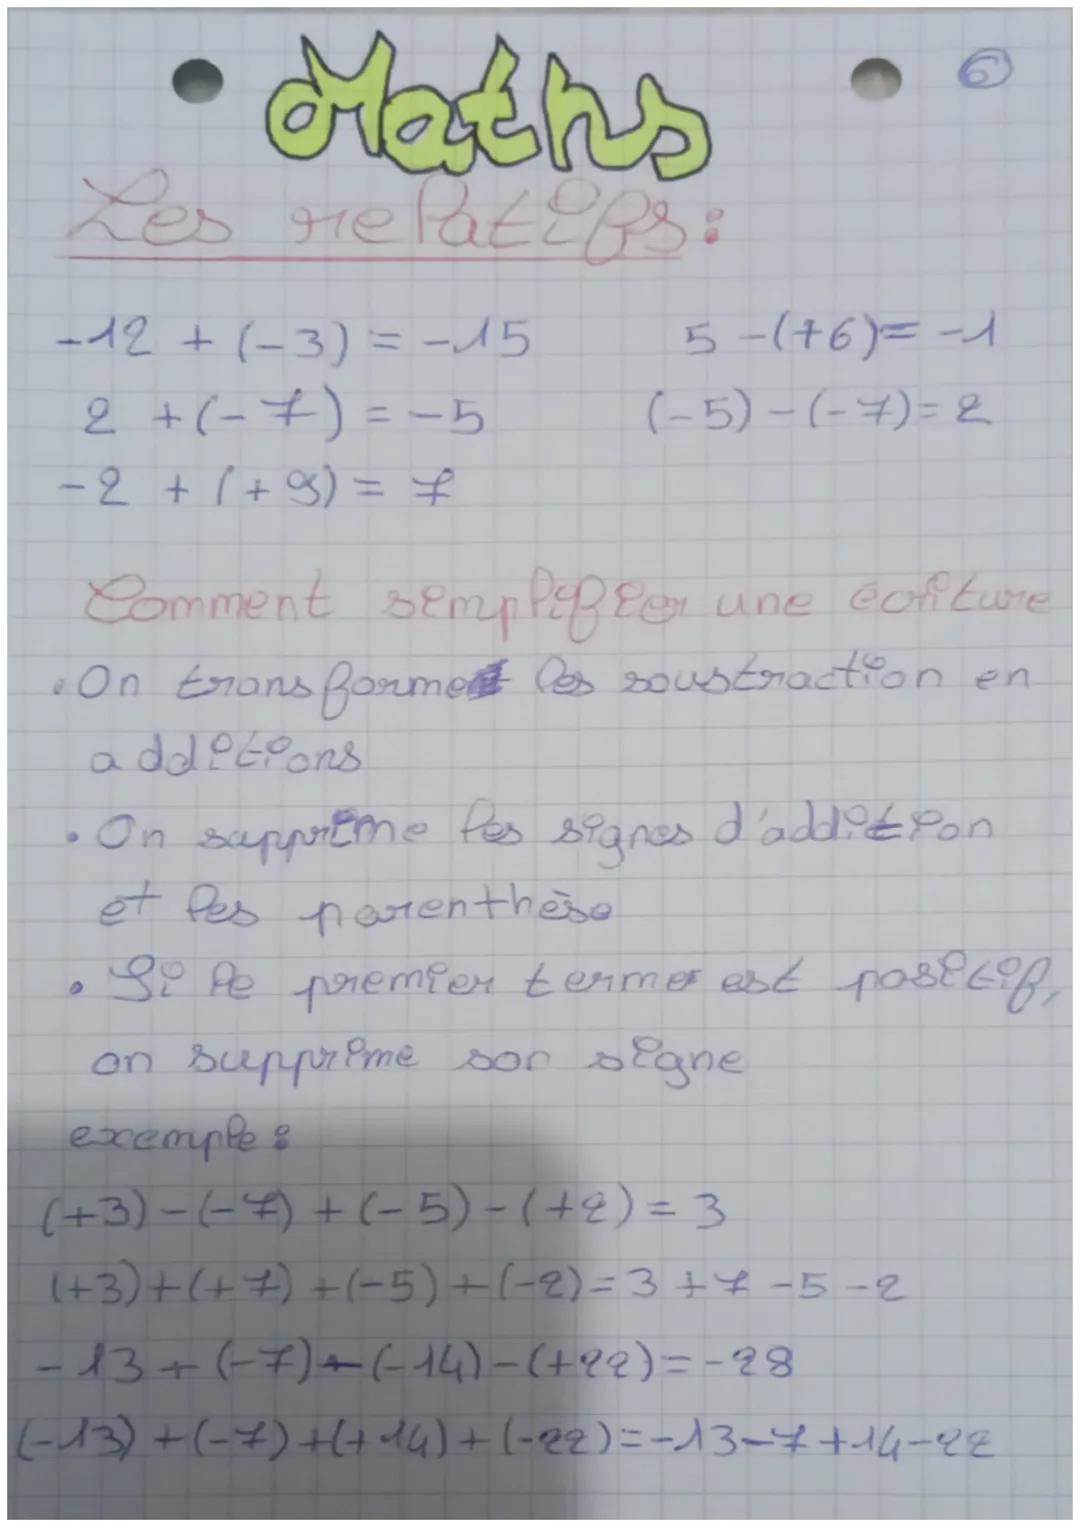 Maths
6
Les relatifs :
-12 + (-3) = -15
5 -(+6)= -1
2 + (-7) = -5
(-5) - (-7)= 2
-2 + (+9) = 7
Comment semplifier une écriture
• On transforme les soustraction en
additions
• On supprime les signes d'addition
et les parenthèse
• Si le premier terme est positif,
on supprime son signe
exemple :
(+3) - (-7) + (-5) - (+2) = 3
(+3)+(+7) +(-5)+(-2)=3+7 -5 -2
-13 + (-7) - (-14) - (+22)=-28
(-13) +(-7)+(+14)+(-22)=-13-7+14-22